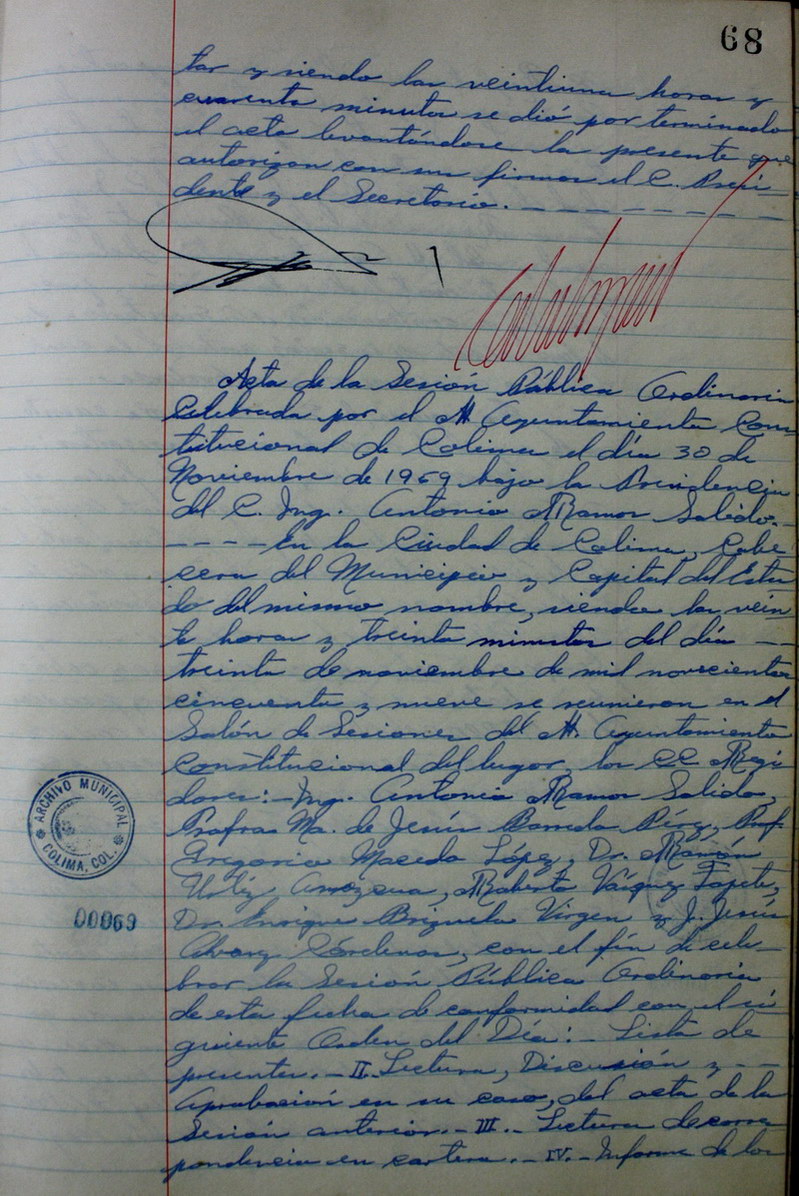 68
tar y siendo las veintiuna horas y
cuarenta minutos se dió por terminado
el acta levantándose la presente que
autorizan con sus firmas el C. Presi-
dente y el Secretario. - - - - - - - - -
Acta de la Sesión Pública Ordinaria
Celebrada por el H. Ayuntamiento Cons
titucional de Colima el día 30 de
Noviembre de 1959 bajo la Presidencia
del C. Ing. Antonio Ramos Salido.-
- - - - En la Ciudad de Colima, Cabe-
cera del Municipio y Capital del Esta
do del mismo nombre, siendo las vein
te horas y treinta minutos del día - -
treinta de noviembre de mil novecientos
cincuenta y nueve se reunieron en el
Salón de Sesiones del H. Ayuntamiento
Constitucional del lugar los CC. Regi
dores:- Ing. Antonio Ramos Salido,
Profra Ma. de Jesús Barreda Pérez, Prof.
Gregorio Macedo López, Dr. Ramón
Roberto Vázquez
Dr. Enrique Brizuela Virgen y J. Jesús
Cárdenas, con el fin de cele-
brar la Sesión Pública Ordinaria
de esta fecha de conformidad con el si
guiente Orden del Día:- Lista de
presentes.- II. Lectura, Discusión y - -
Aprobación en su caso, del acta de la
Sesión anterior.- III.- Lectura de corres
pondencia en cartera.- IV.- Informe de los
ARCHIVO MUNICIPAL
COLIMA, COL.
00069